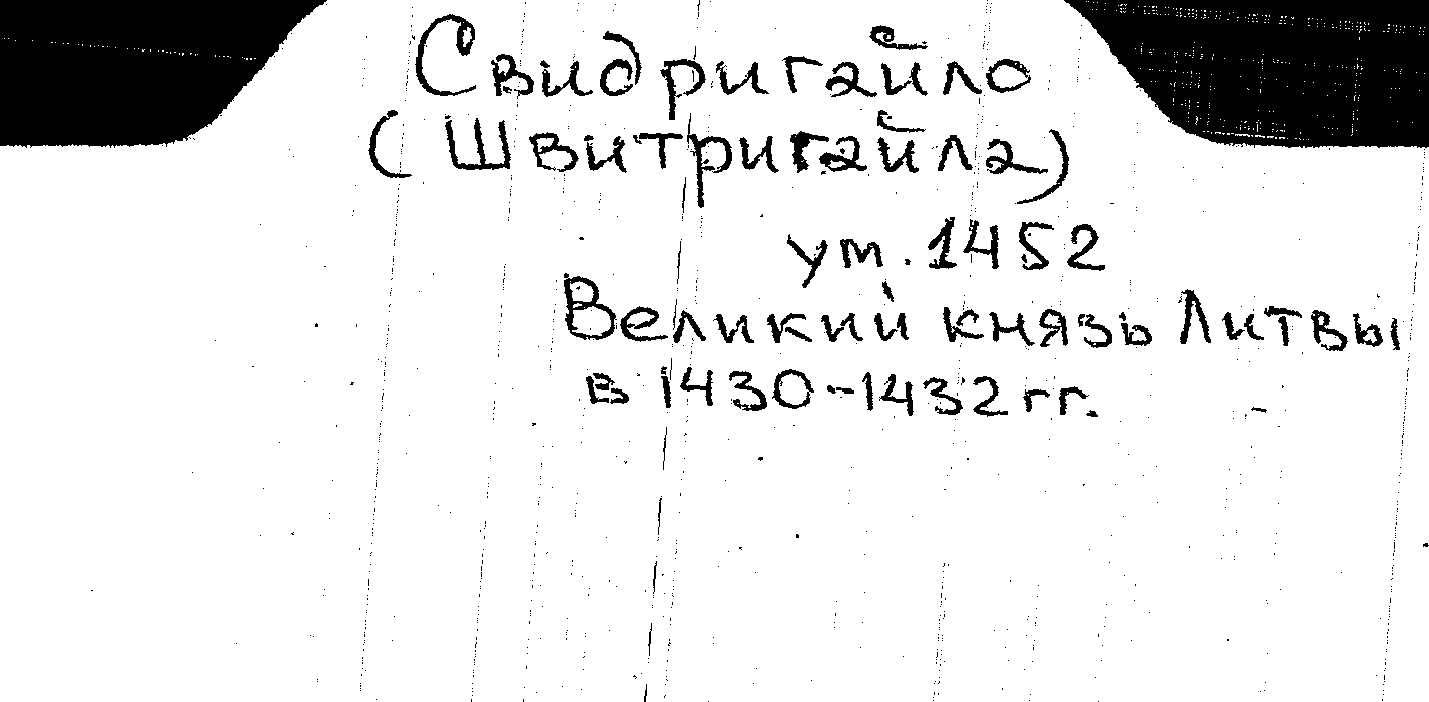 Свидригайло
(Швитригайла)
ум. 1452
Великий князь Литвы
в 1430-1432 гг.